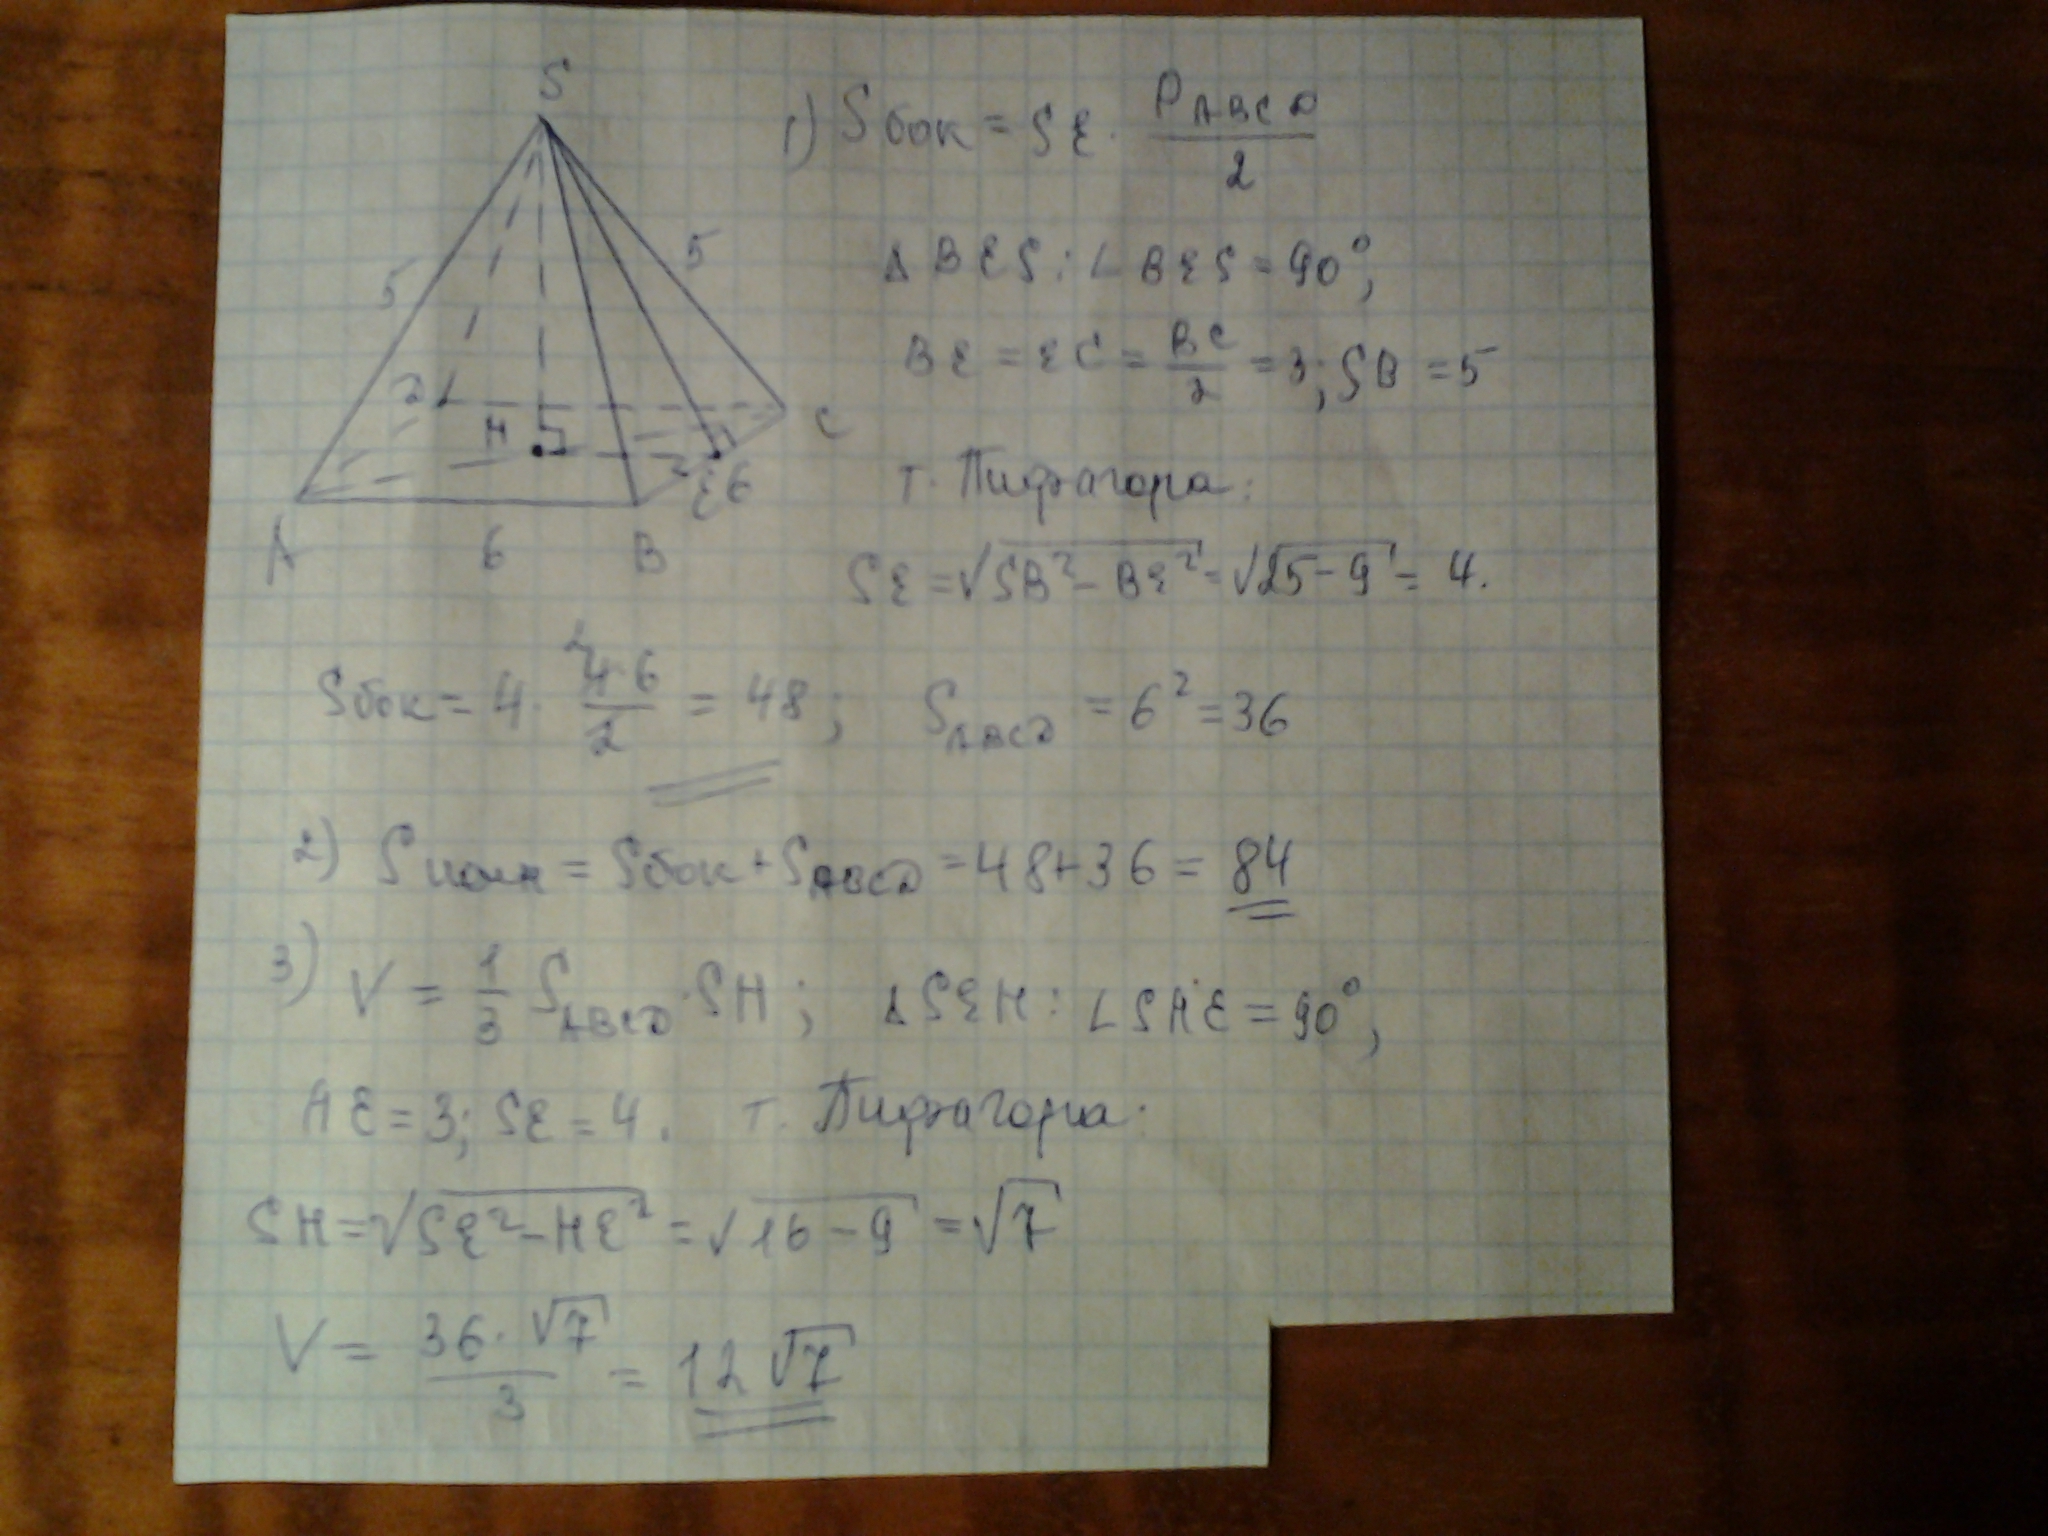 S
5
5
D
H
C
E 6
A
6
B
1) Sбок = SE · P_ABCD / 2
Δ BES: ∠ BES = 90°,
BE = EC = BC/2 = 3; SB = 5
т. Пифагора:
SE = √(SB² - BE²) = √(25 - 9) = 4.
Sбок = 4 · 4·6/2 = 48; S_ABCD = 6² = 36
2) Sполн = Sбок + S_ABCD = 48 + 36 = 84
3) V = 1/3 S_ABCD · SH; Δ SEH: ∠ SHE = 90°,
HE = 3; SE = 4. т. Пифагора:
SH = √(SE² - HE²) = √(16 - 9) = √7
V = 36 · √7 / 3 = 12 √7